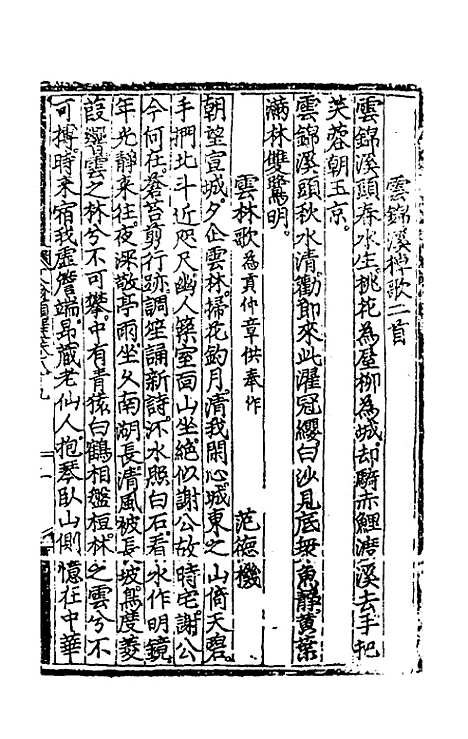 雲錦溪棹歌二首
雲錦溪頭春水生桃花為屋柳為城却騎赤鯉溯溪去手把
芙蓉朝玉京
雲錦溪頭秋水清勸郎來此濯冠纓白沙見底衆魚靜黄葉
滿林雙鷺明
雲林歌為貢仲章供奉作 范德機
朝望宣城夕企雲林掃花釣月清我閑心城東之山倚天碧
手捫北斗近咫尺幽人築室面山坐絶似謝公故時宅謝公
今何在蒼苔剪行跡調座誦新詩汲水照白石看水作明鏡
年光靜來往夜深敬亭雨坐久南湖長清風被長坡無度菱
葭響雲之林兮不可攀中有青猿白鶴相盤桓林之雲兮不
可摶時来宿我虚簷端昂藏老仙人抱琴臥山側憶在中華